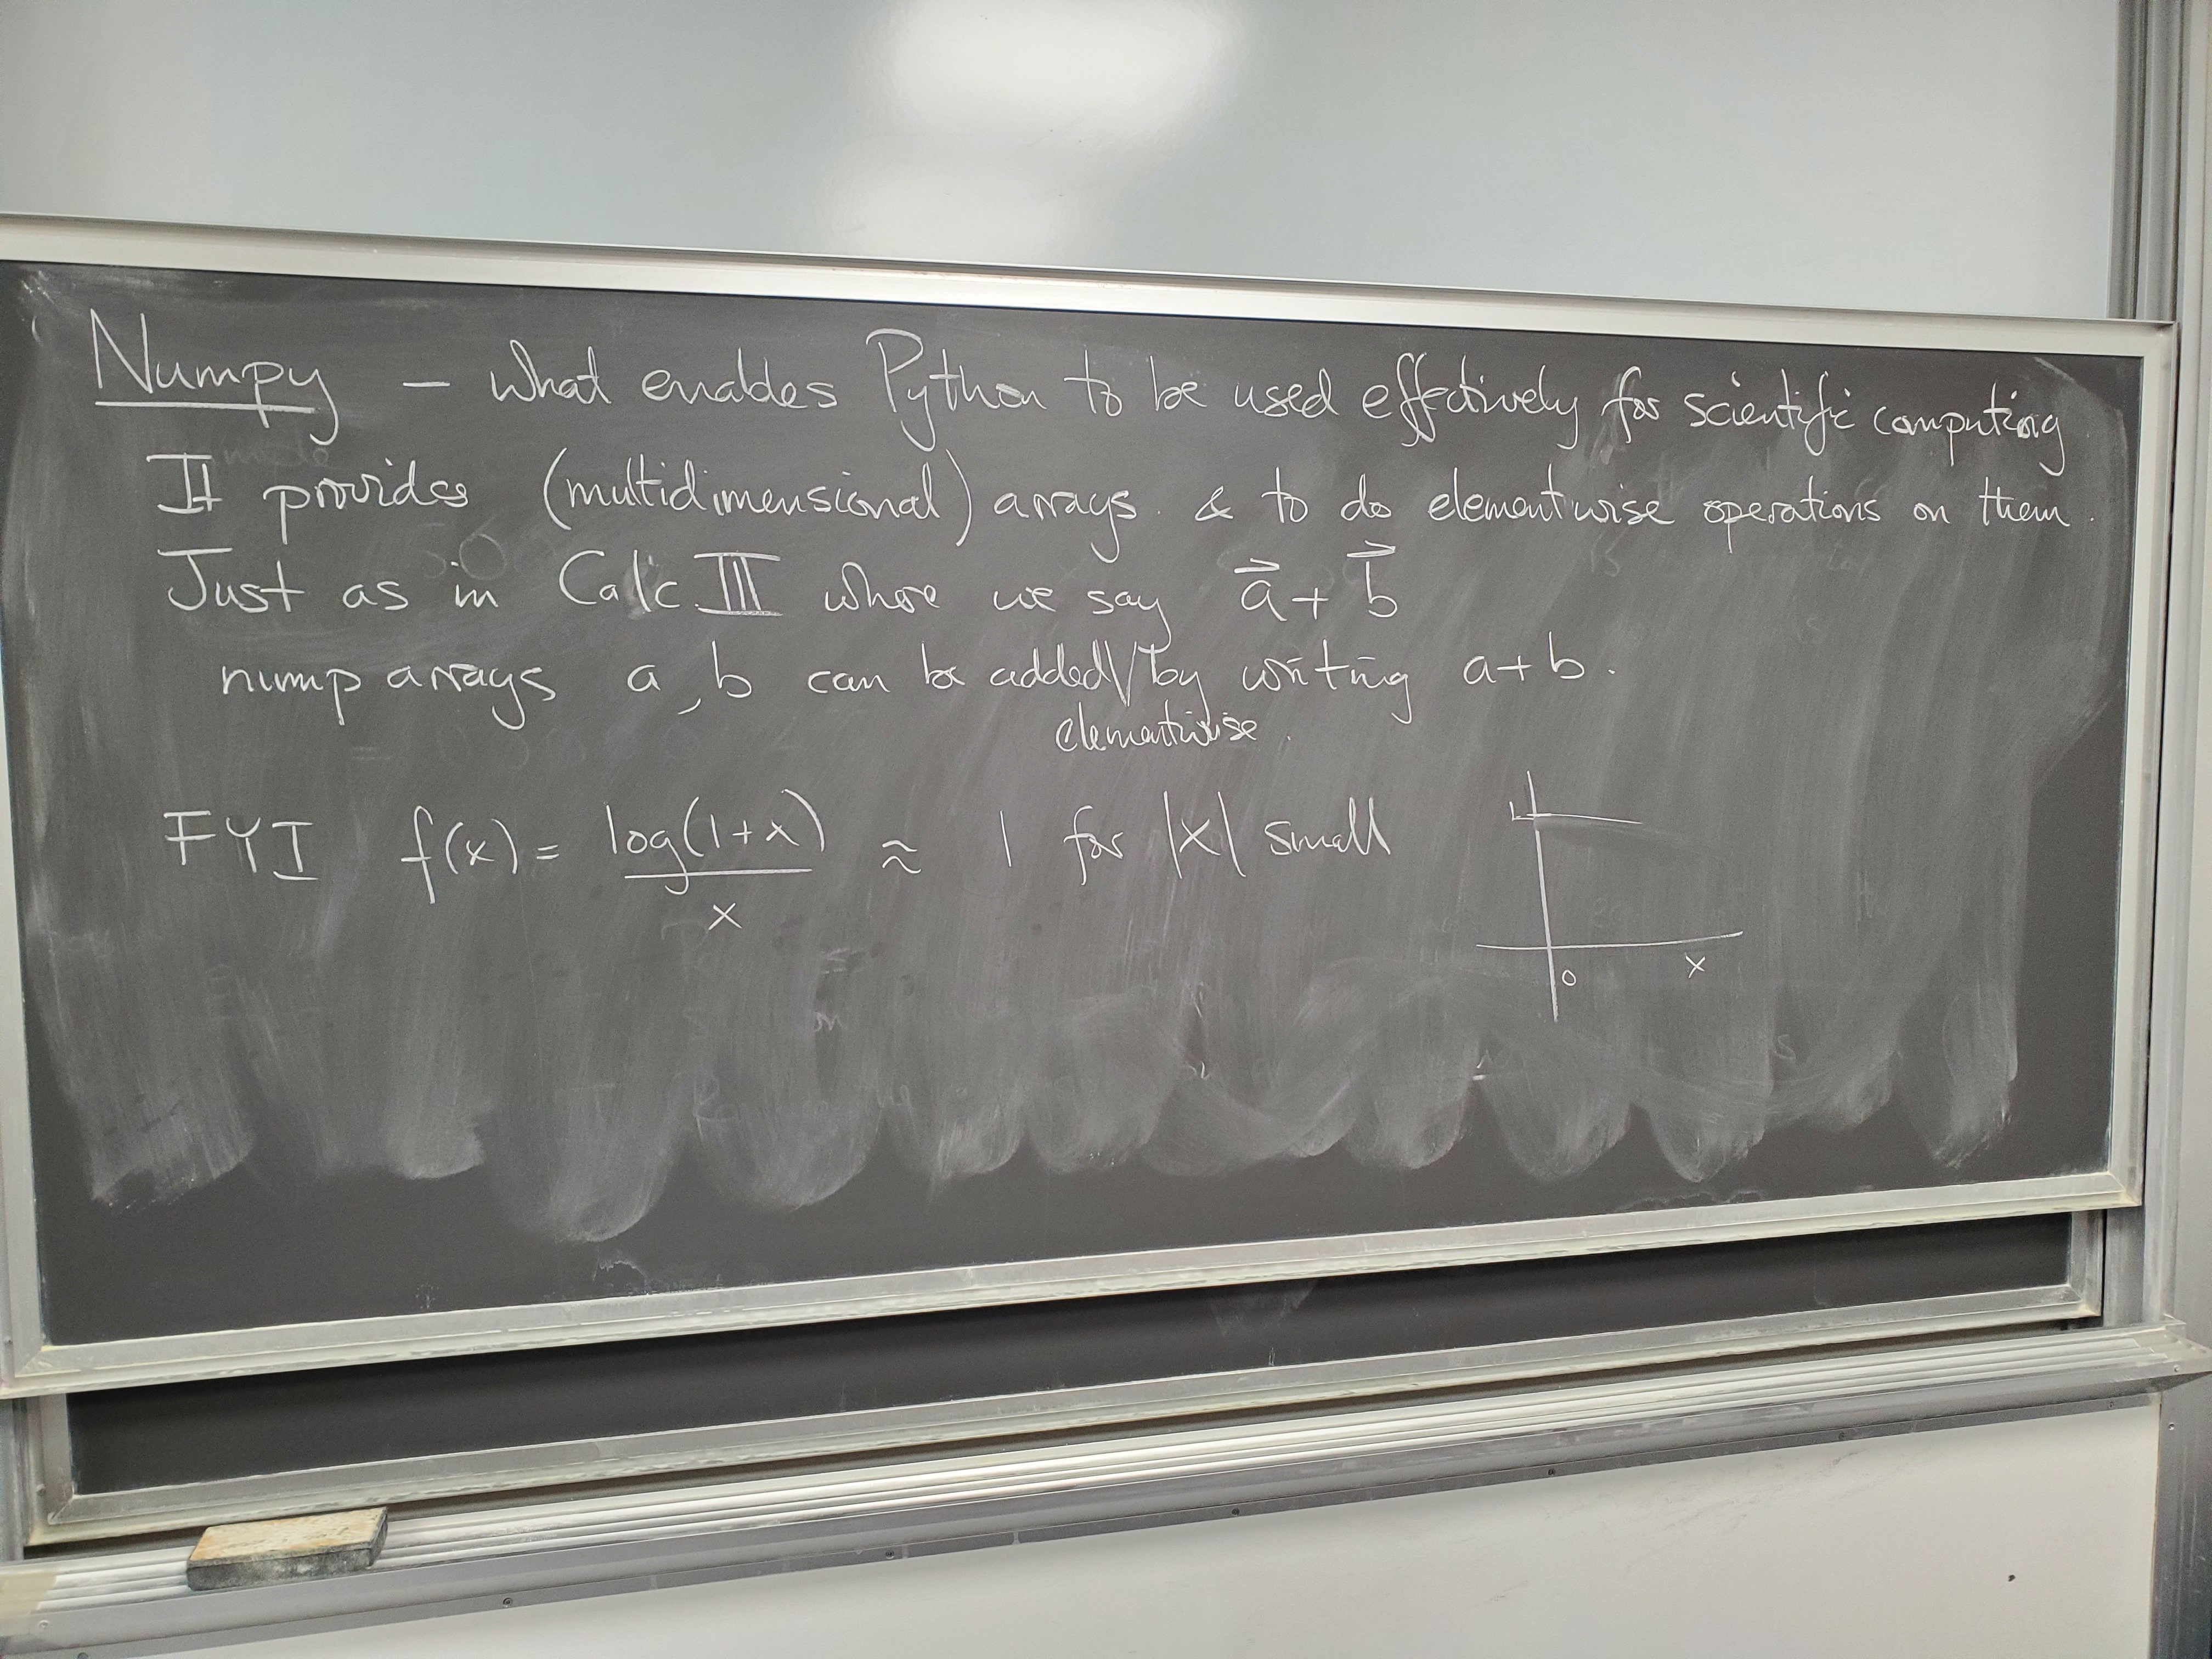 Numpy – what enables Python to be used effectively for scientific computing
It provides (multidimensional) arrays. & to do elementwise operations on them.
Just as in Calc III where we say a⃗ + b⃗
nump arrays a, b can be added/by writing a+b.
elementwise.
FYI f(x) = log(1+x)/x ≈ 1 for |x| small
1
0 x